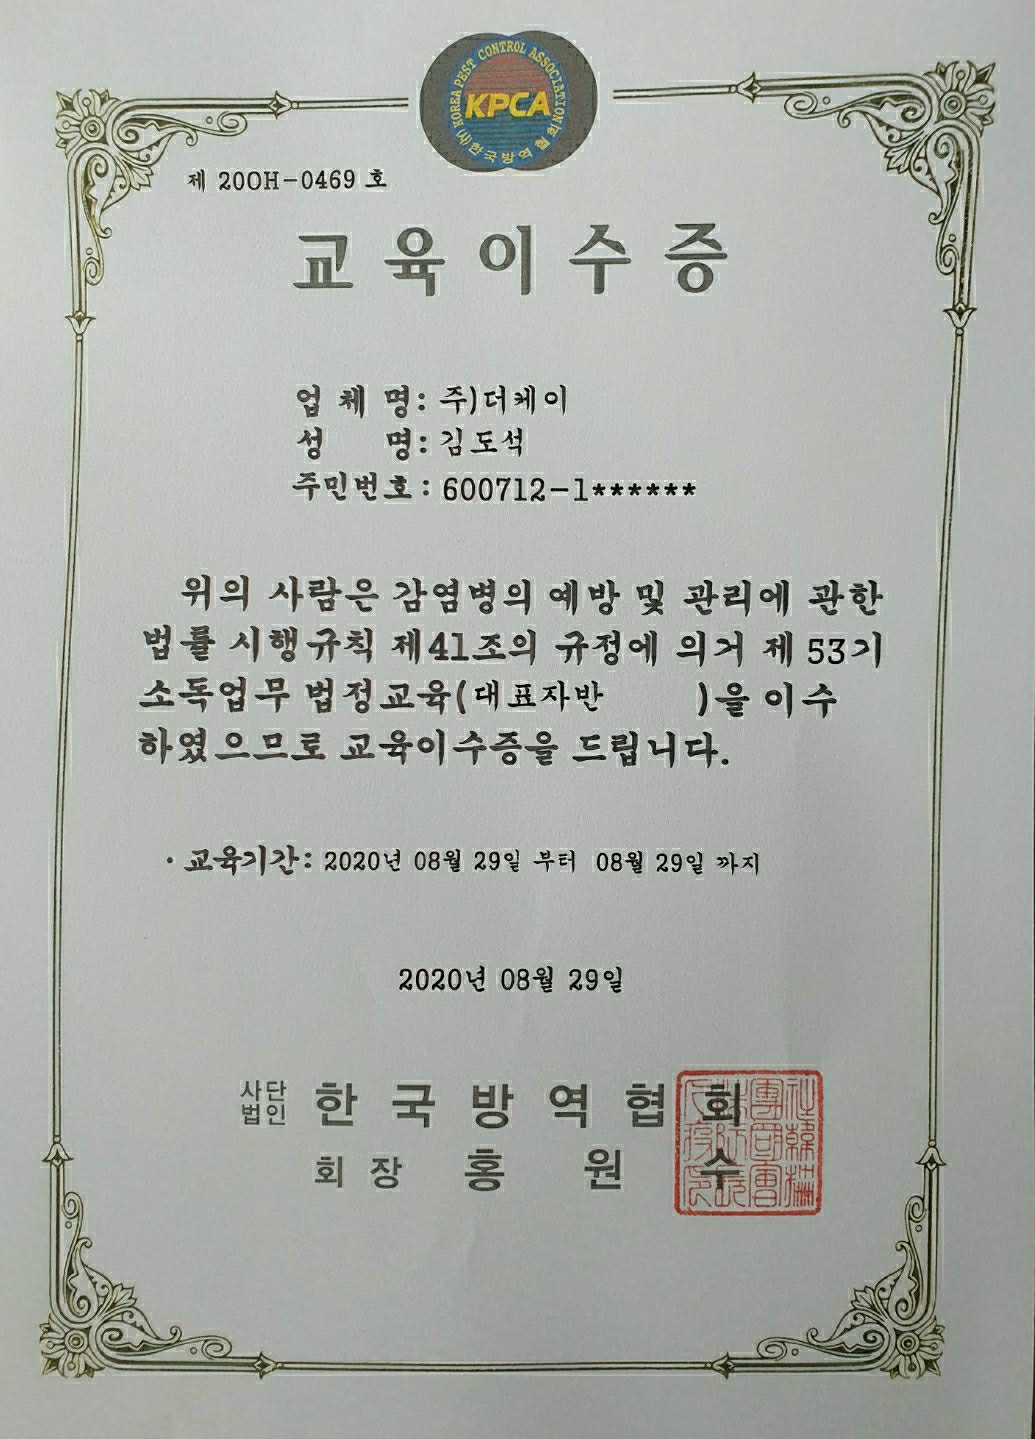 KOREA PEST CONTROL ASSOCIATION
KPCA
(사)한국방역협회
제 20OH-0469 호
교육이수증
업 체 명: 주)더케이
성 명: 김도석
주민번호: 600712-1******
위의 사람은 감염병의 예방 및 관리에 관한
법률 시행규칙 제41조의 규정에 의거 제 53기
소독업무 법정교육(대표자반 )을 이수
하였으므로 교육이수증을 드립니다.
· 교육기간: 2020년 08월 29일 부터 08월 29일 까지
2020년 08월 29일
사단법인 한국방역협회
회장 홍원수